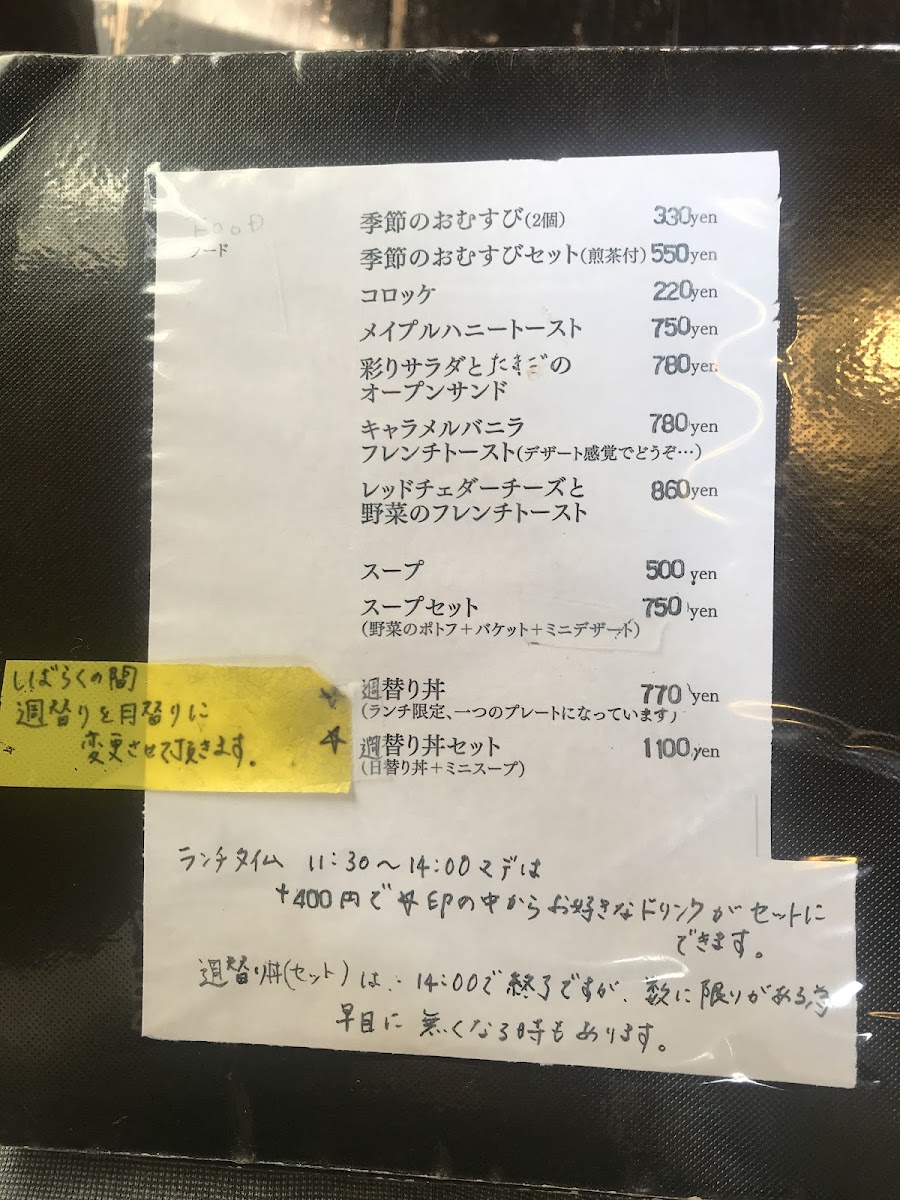 FOOD
フード
季節のおむすび(2個) 330yen
季節のおむすびセット(煎茶付) 550yen
コロッケ 220yen
メイプルハニートースト 750yen
彩りサラダとたまごの 780yen
オープンサンド
キャラメルバニラ 780yen
フレンチトースト(デザート感覚でどうぞ…)
レッドチェダーチーズと 860yen
野菜のフレンチトースト
スープ 500yen
スープセット 750yen
(野菜のポトフ+バケット+ミニデザート)
しばらくの間
週替りを月替りに
変更させて頂きます。
☆週替り丼 770yen
(ランチ限定、一つのプレートになっています)
☆週替り丼セット 1100yen
(日替り丼+ミニスープ)
ランチタイム 11:30〜14:00マデは
+400円で☆印の中からお好きなドリンクがセットに
できます。
週替り丼(セット)は、14:00で終了ですが、数に限りがある為
早目に無くなる時もあります。